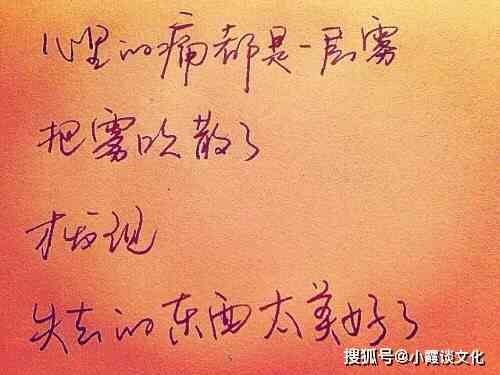 心里的痛都是一层雾
把雾吹散了
才发现
失去的东西太美好了
搜狐号@小霞谈文化